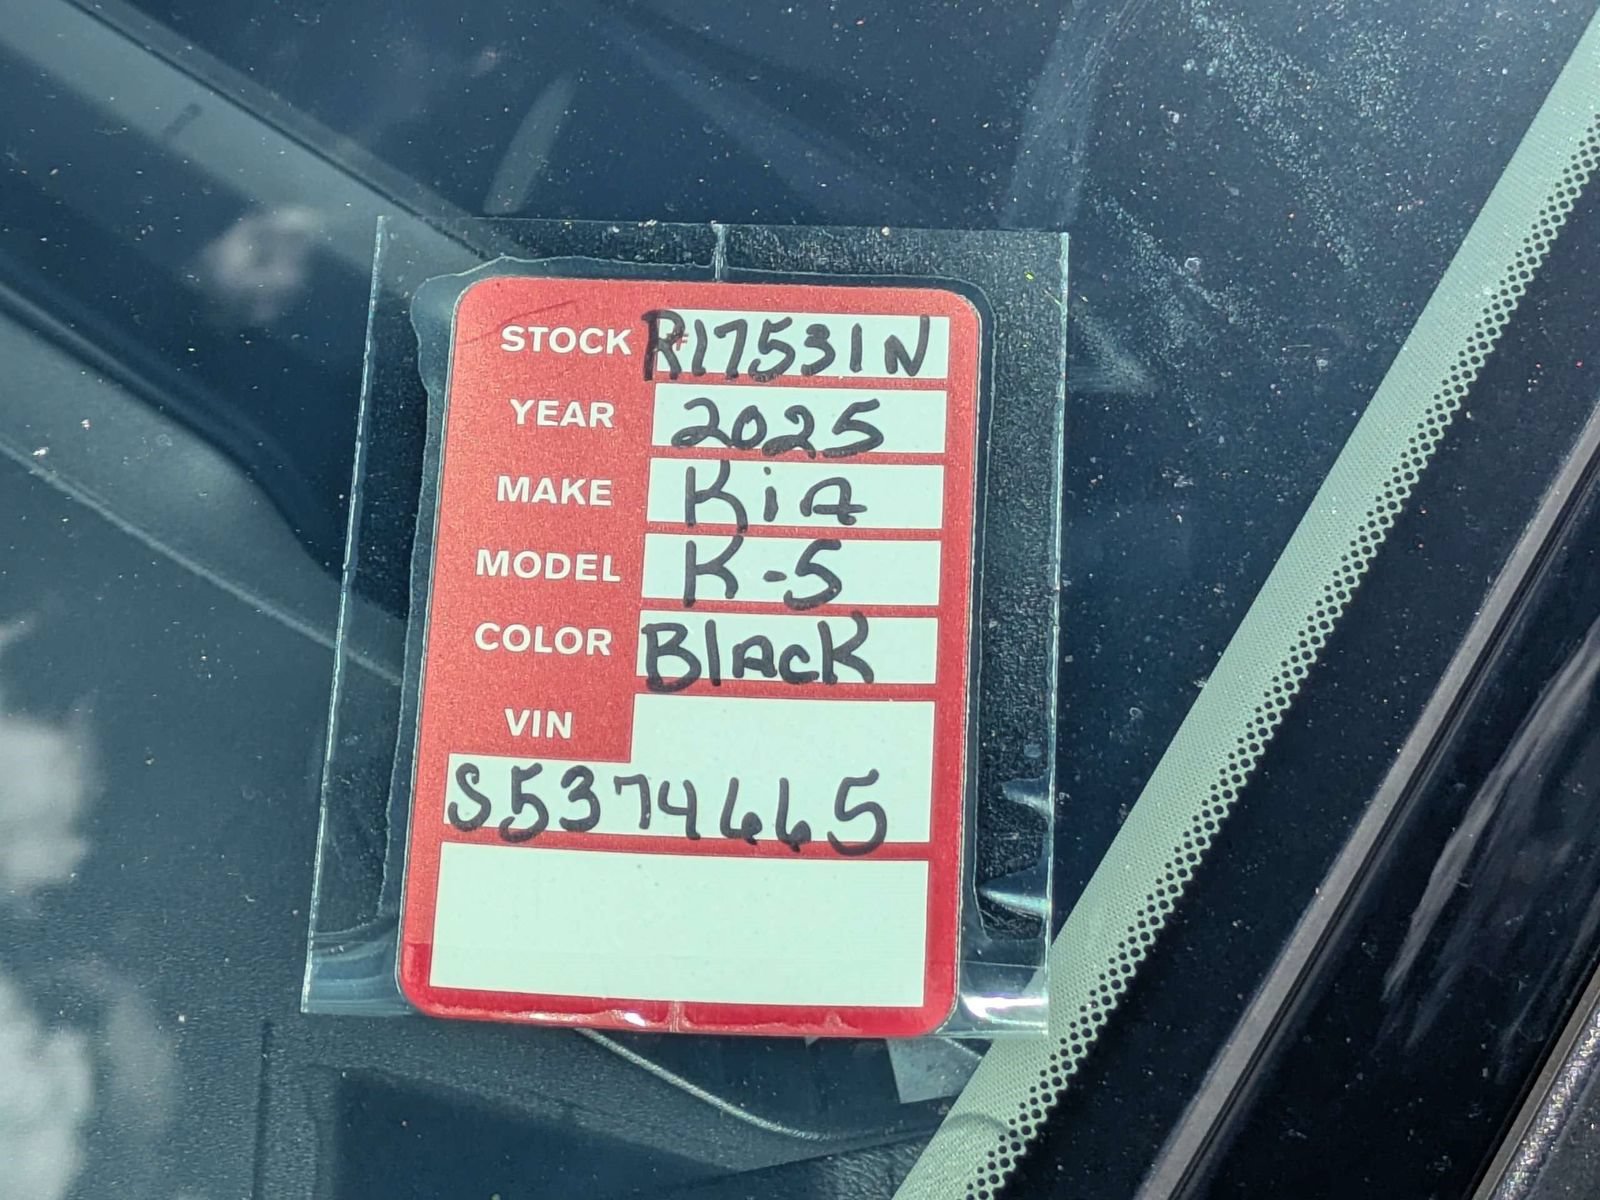 STOCK # R17531N
YEAR 2025
MAKE KiA
MODEL K-5
COLOR BlAcK
VIN
S5374665